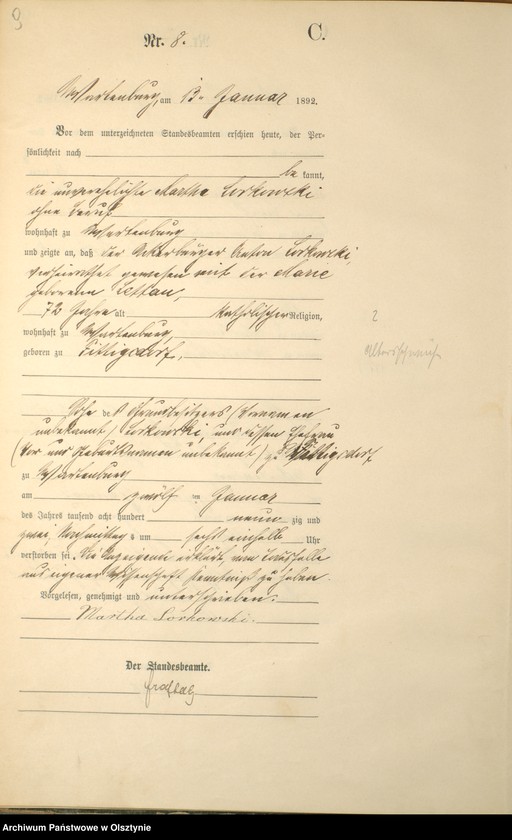 9
C.
Nr. 8.
Wartenburg, am 13ten Januar 1892.
Vor dem unterzeichneten Standesbeamten erschien heute, der Per-
sönlichkeit nach
be kannt,
die unverehelichte Martha Lorkowski
ohne Beruf
wohnhaft zu Wartenburg
und zeigte an, daß der Ackerbürger Anton Lorkowski,
verheirathet gewesen mit der Marie
geborenen Lettau,
72 Jahre alt katholischer Religion,
wohnhaft zu Wartenburg
geboren zu Fittigsdorf,
Sohn des Grundbesitzers (Vornamen
unbekannt) Lorkowski, und dessen Ehefrau
(Vor und Geburtsnamen unbekannt) zu Fittigsdorf
zu Wartenburg
am zwölf ten Januar
des Jahres tausend acht hundert neun zig und
zwei, Nachmittags um sechs einhalb Uhr
verstorben sei. Die Anzeigende erklärt, vom Todesfalle
aus eigener Wissenschaft Kenntniß zu haben.
Vorgelesen, genehmigt und unterschrieben.
Martha Lorkowski.
Der Standesbeamte.
2
Altersschwäche
Archiwum Państwowe w Olsztynie